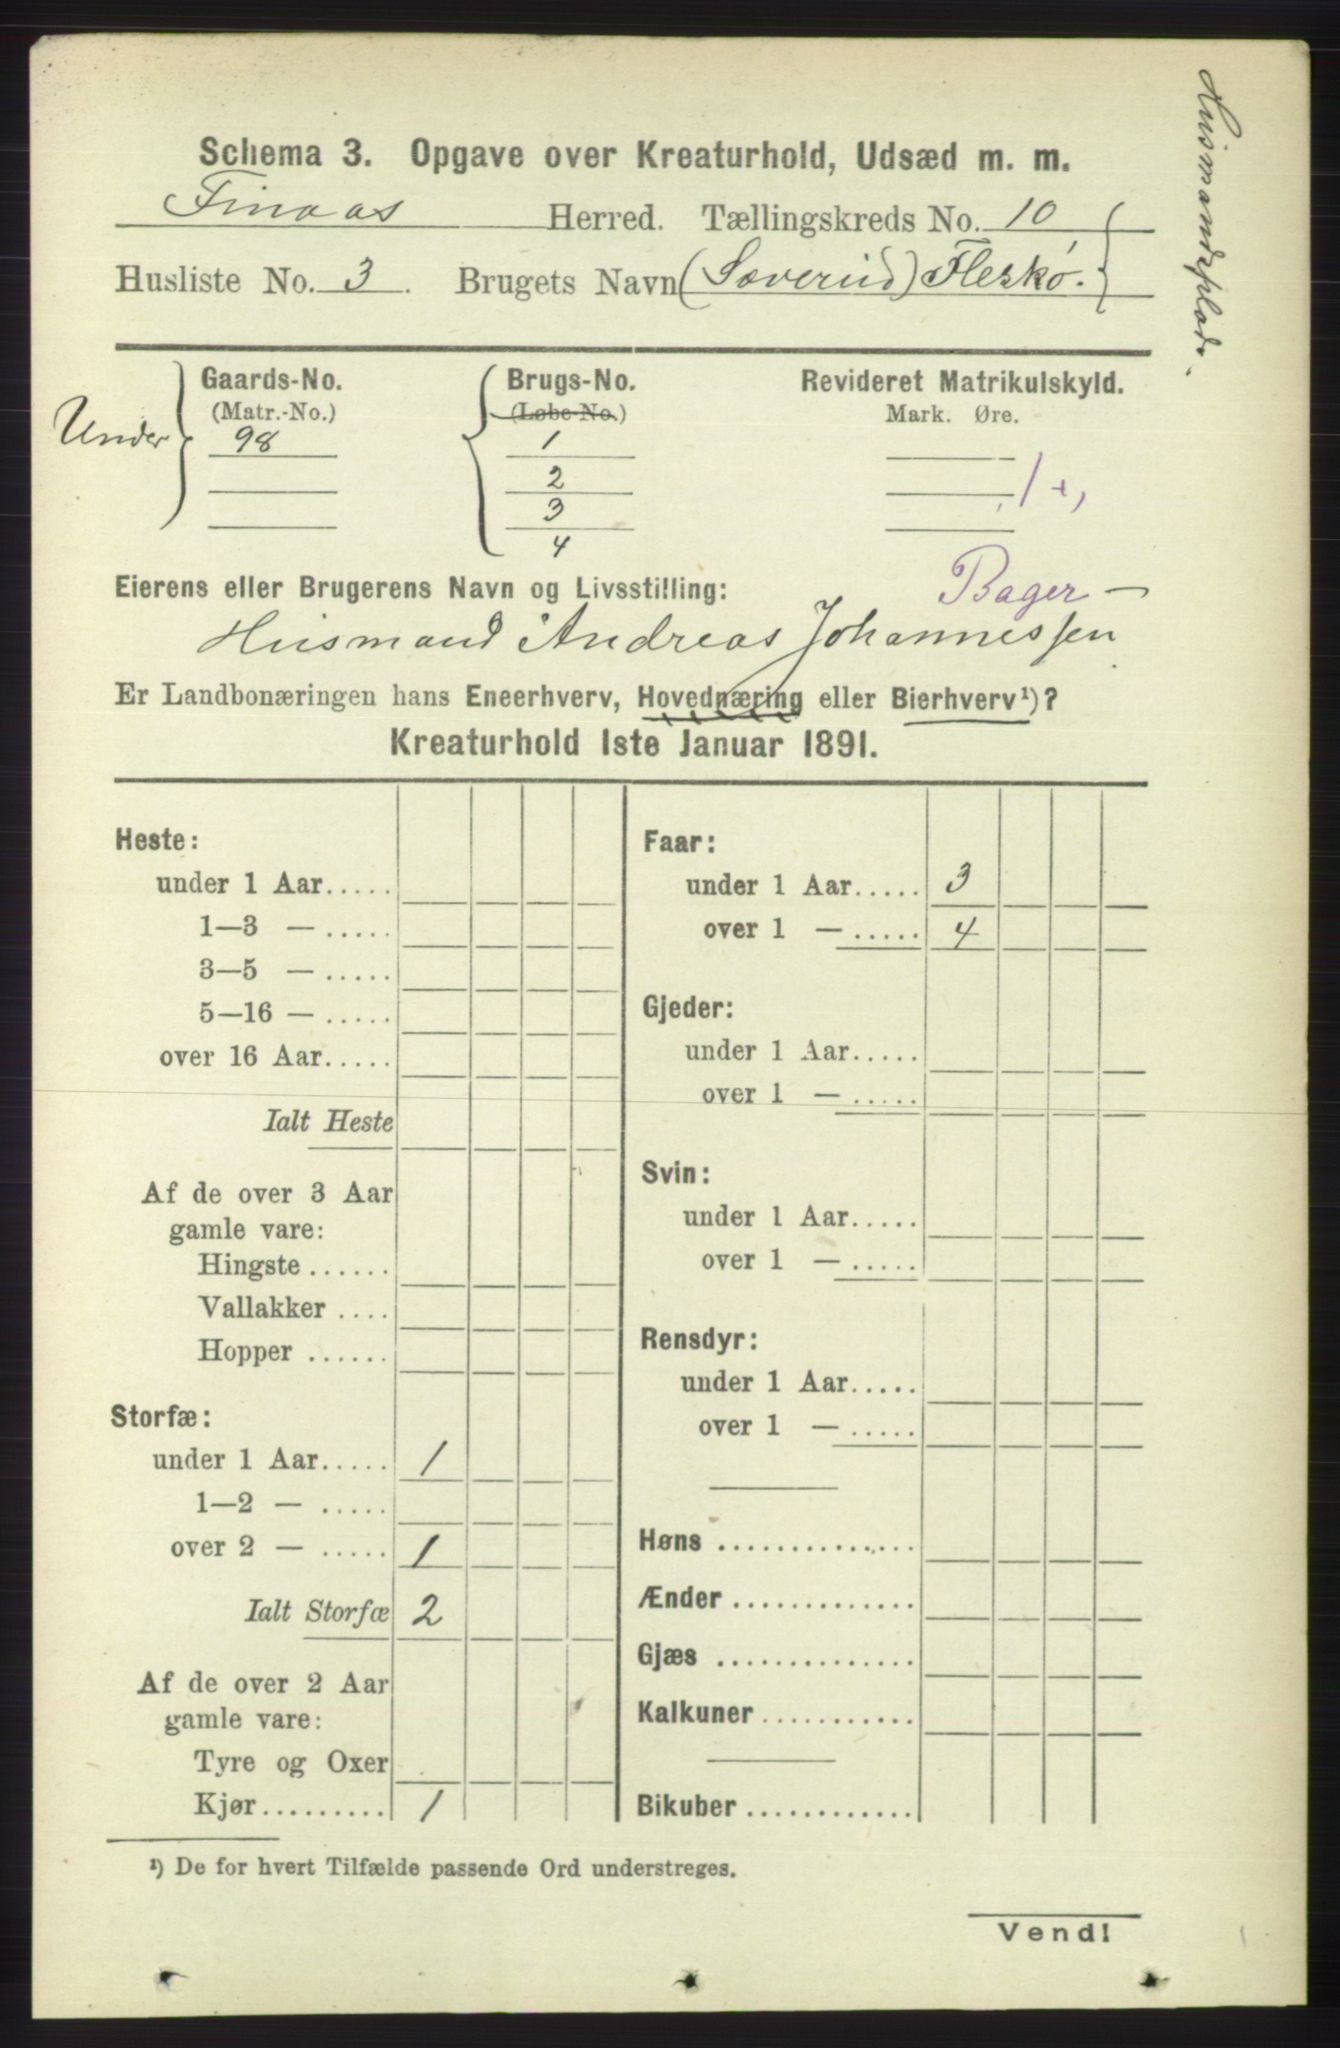 Husmandsplads.
Schema 3. Opgave over Kreaturhold, Udsæd m. m.
Finaas Herred. Tællingskreds No. 10
Husliste No. 3. Brugets Navn (Sæverud) Fleskø.
Gaards-No. Brugs-No. Revideret Matrikulskyld.
(Matr.-No.) (Løbe-No.) Mark. Øre.
Under 98 1
2 1 +,
3
4
Eierens eller Brugerens Navn og Livsstilling: Bager —
Husmand Andreas Johannessen
Er Landbonæringen hans Eneerhverv, Hovednæring eller Bierhverv¹)?
Kreaturhold 1ste Januar 1891.
Heste:
under 1 Aar.....
1—3 — .....
3—5 — .....
5—16 — .....
over 16 Aar.....
Ialt Heste
Af de over 3 Aar
gamle vare:
Hingste ......
Vallakker ....
Hopper ......
Storfæ:
under 1 Aar..... 1
1—2 — .....
over 2 — ..... 1
Ialt Storfæ 2
Af de over 2 Aar
gamle vare:
Tyre og Oxer
Kjør......... 1
Faar:
under 1 Aar..... 3
over 1 — ..... 4
Gjeder:
under 1 Aar.....
over 1 — .....
Svin:
under 1 Aar.....
over 1 — .....
Rensdyr:
under 1 Aar.....
over 1 — .....
Høns ..............
Ænder .............
Gjæs ..............
Kalkuner ...........
Bikuber ............
¹) De for hvert Tilfælde passende Ord understreges.
Vend!